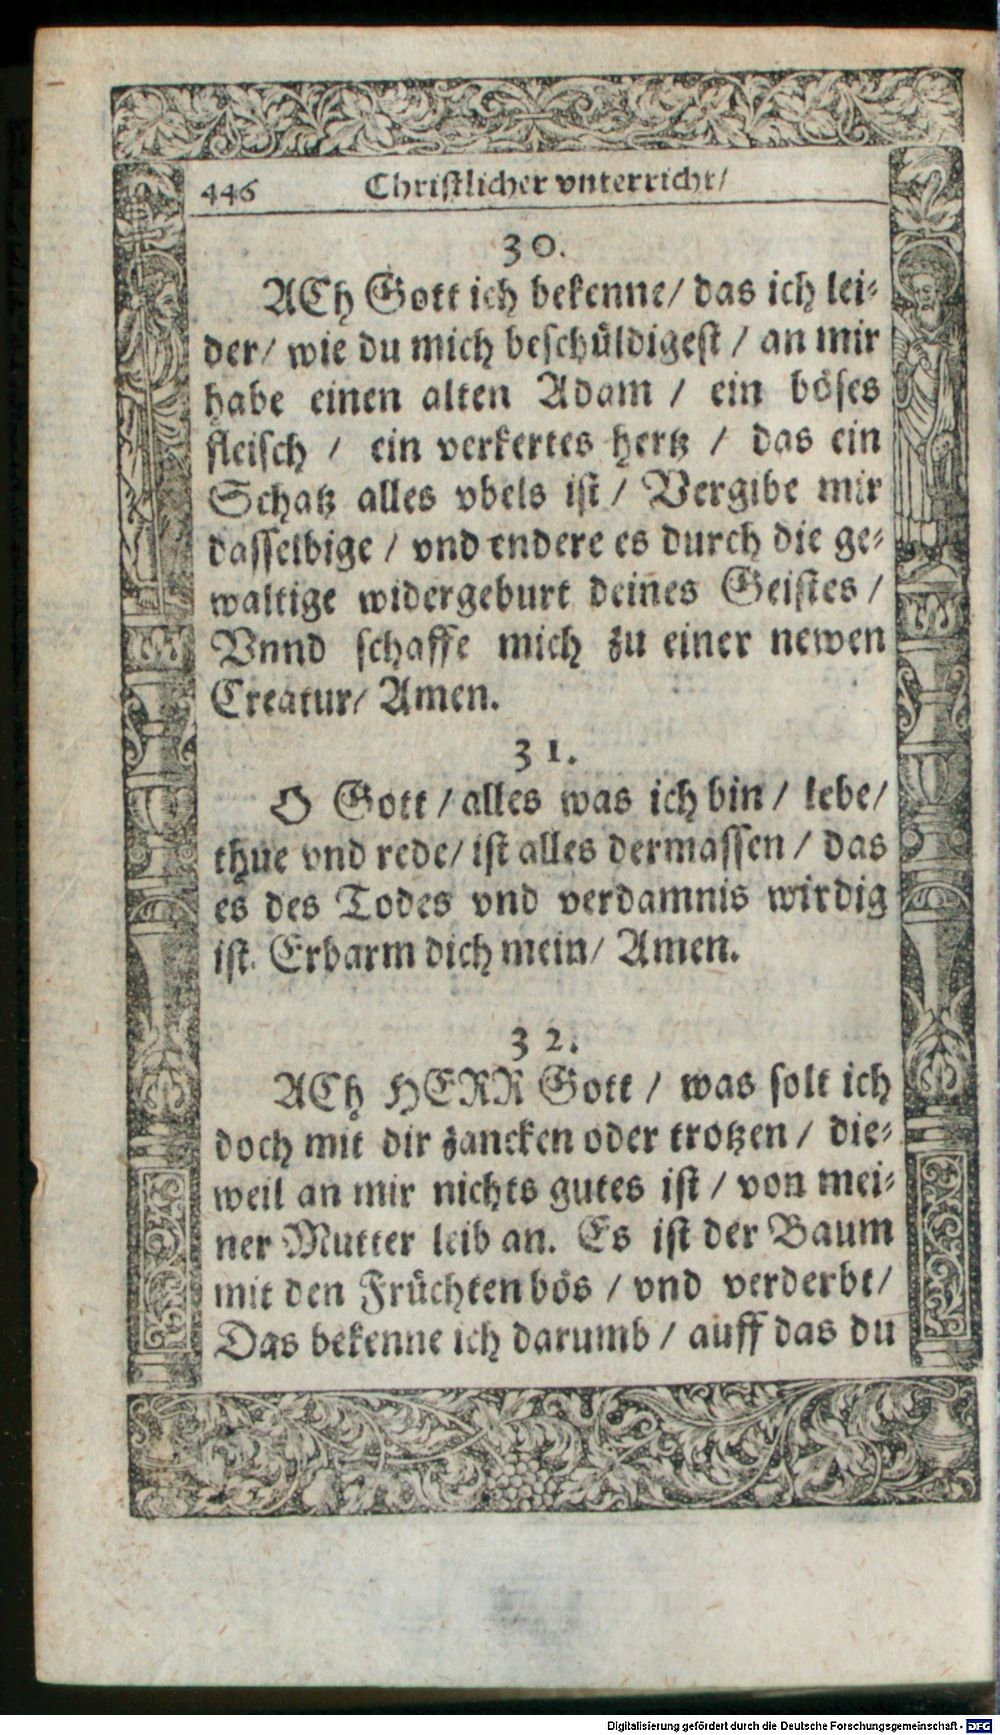 446 Christlicher vnterricht/
30.
ACh Gott ich bekenne/ das ich lei⸗
der/ wie du mich beschüldigest / an mir
habe einen alten Adam / ein böses
fleisch / ein verkertes hertz / das ein
Schatz alles vbels ist / Vergibe mir
dasselbige / vnd endere es durch die ge⸗
waltige widergeburt deines Geistes /
Vnnd schaffe mich zu einer newen
Creatur/ Amen.
31.
O Gott / alles was ich bin / lebe/
thue vnd rede/ ist alles dermassen / das
es des Todes vnd verdamnis wirdig
ist. Erbarm dich mein/ Amen.
32.
ACh HERR Gott / was solt ich
doch mit dir zancken oder trotzen / die⸗
weil an mir nichts gutes ist / von mei⸗
ner Mutter leib an. Es ist der Baum
mit den Früchten bös / vnd verderbt/
Das bekenne ich darumb / auff das du
Digitalisierung gefördert durch die Deutsche Forschungsgemeinschaft - DFG